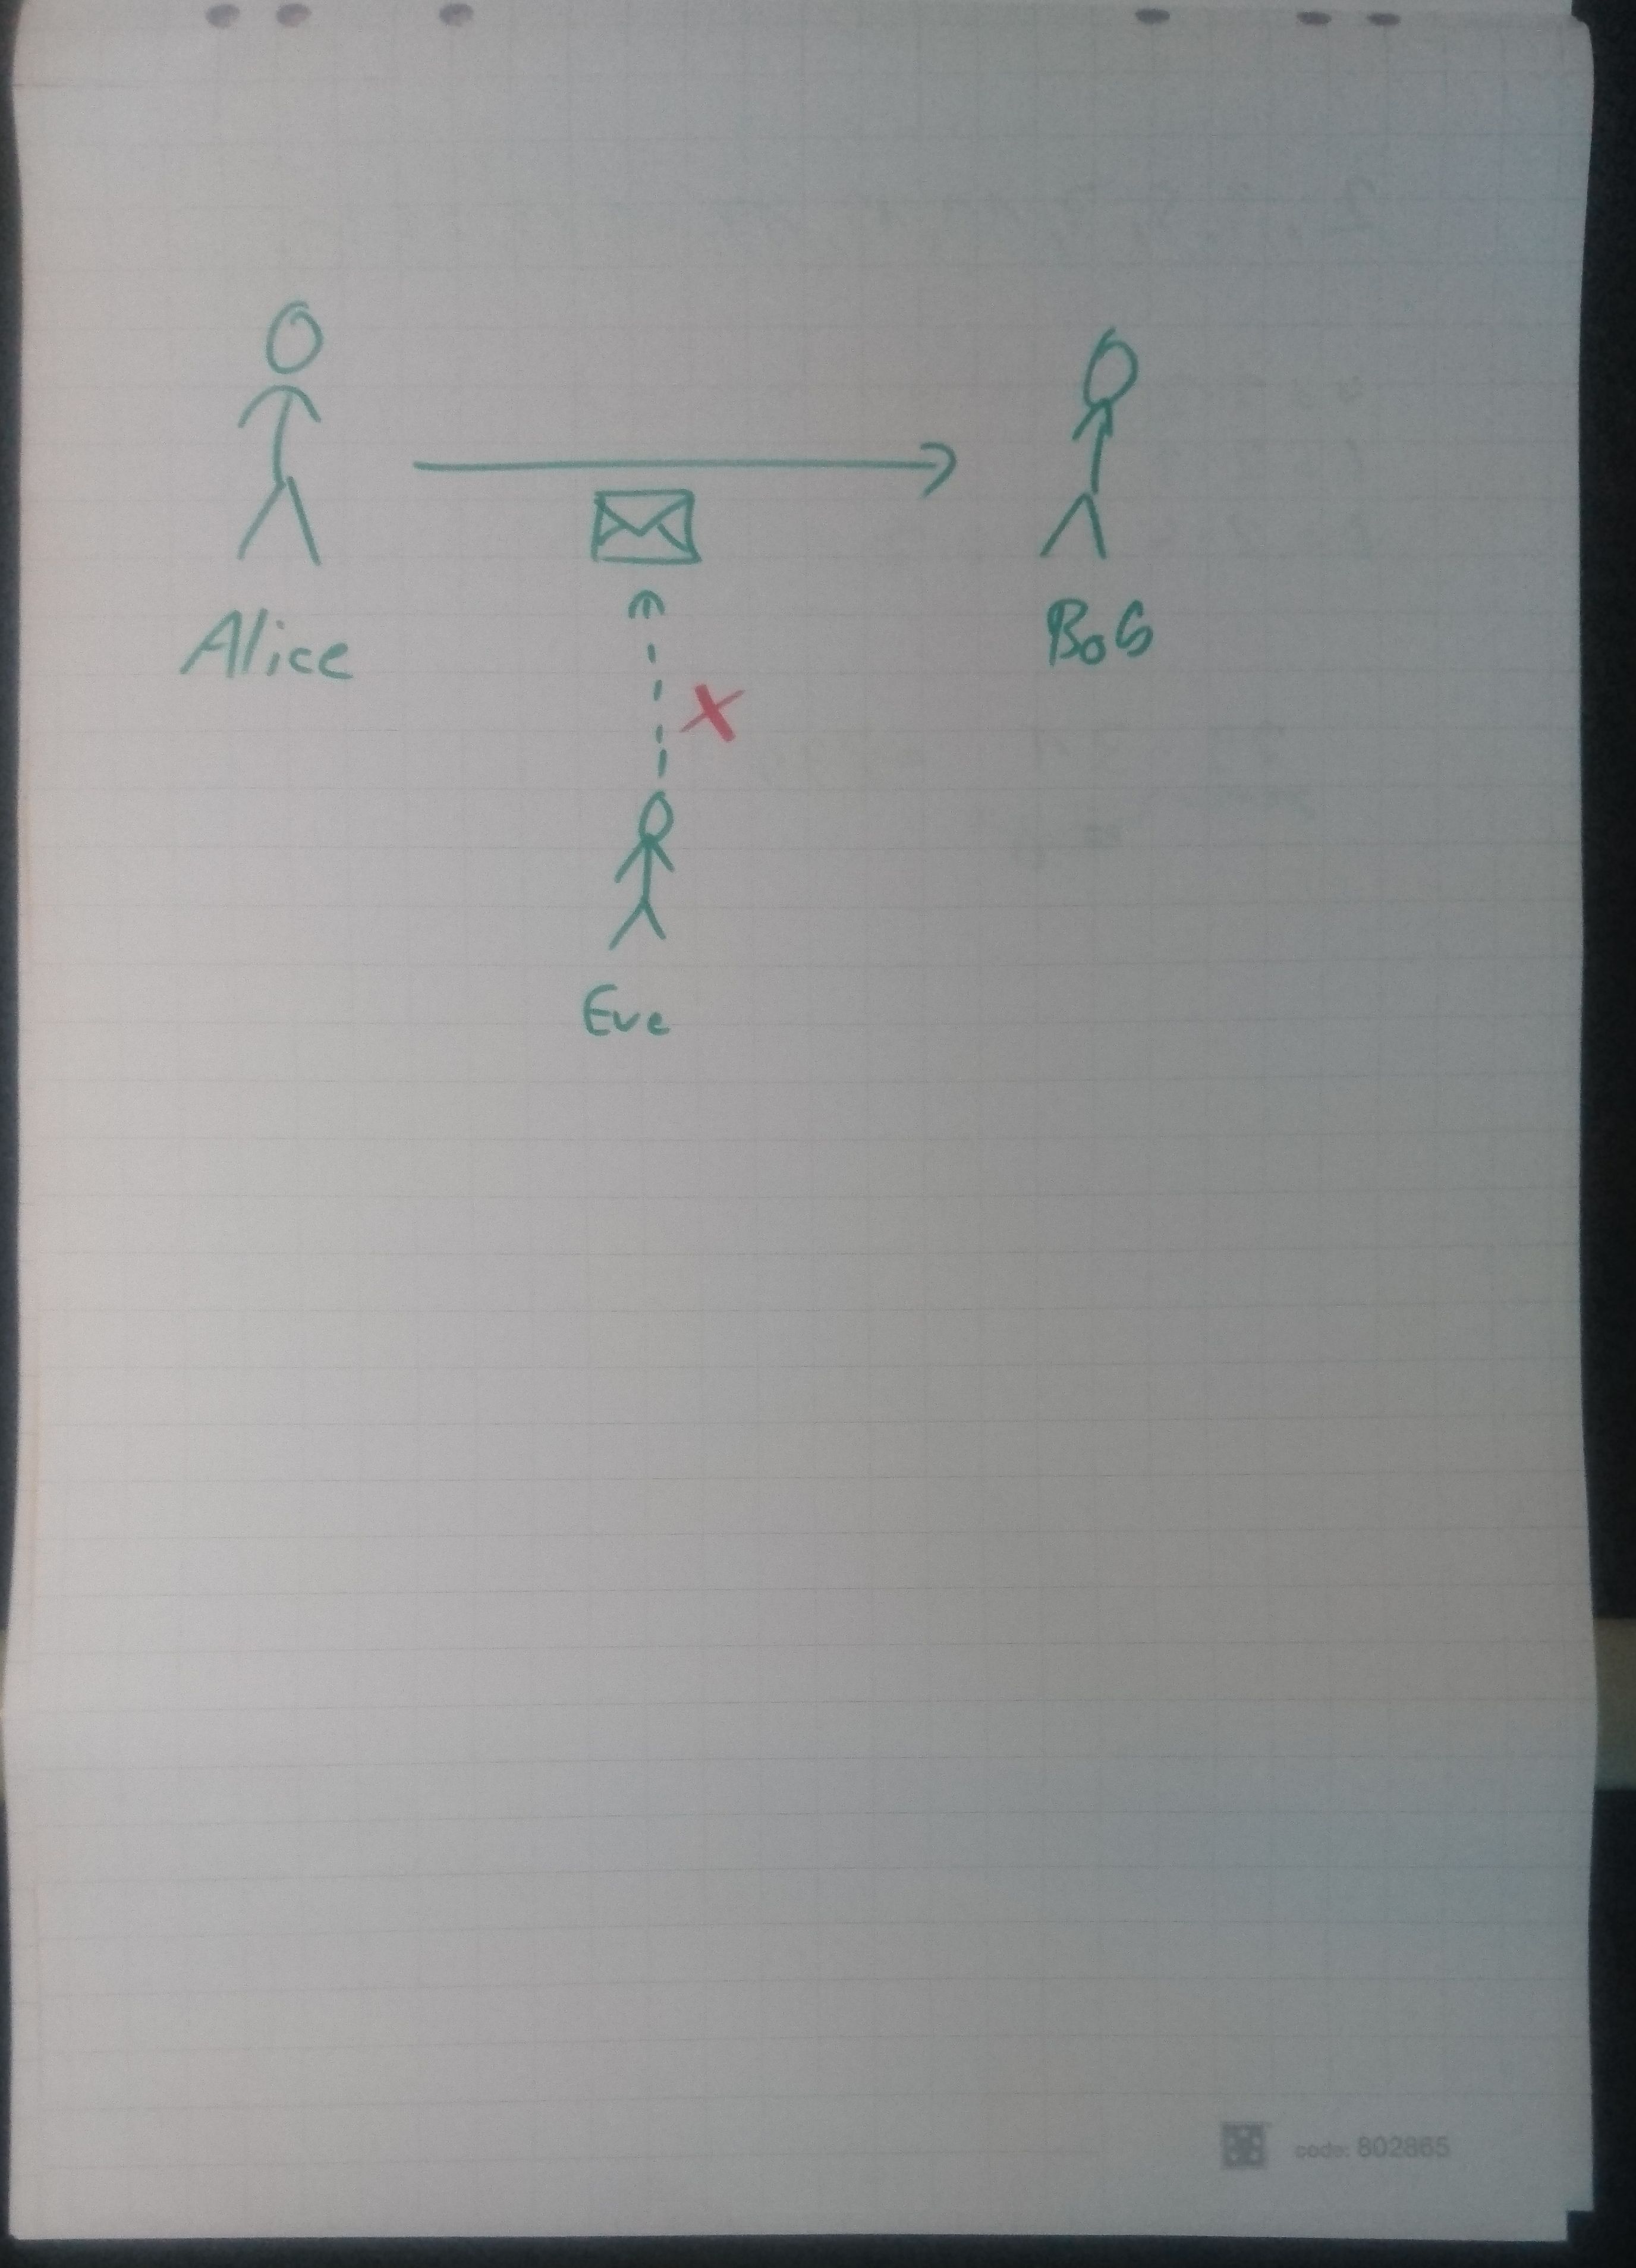 Alice
Bob
Eve
code: 802865